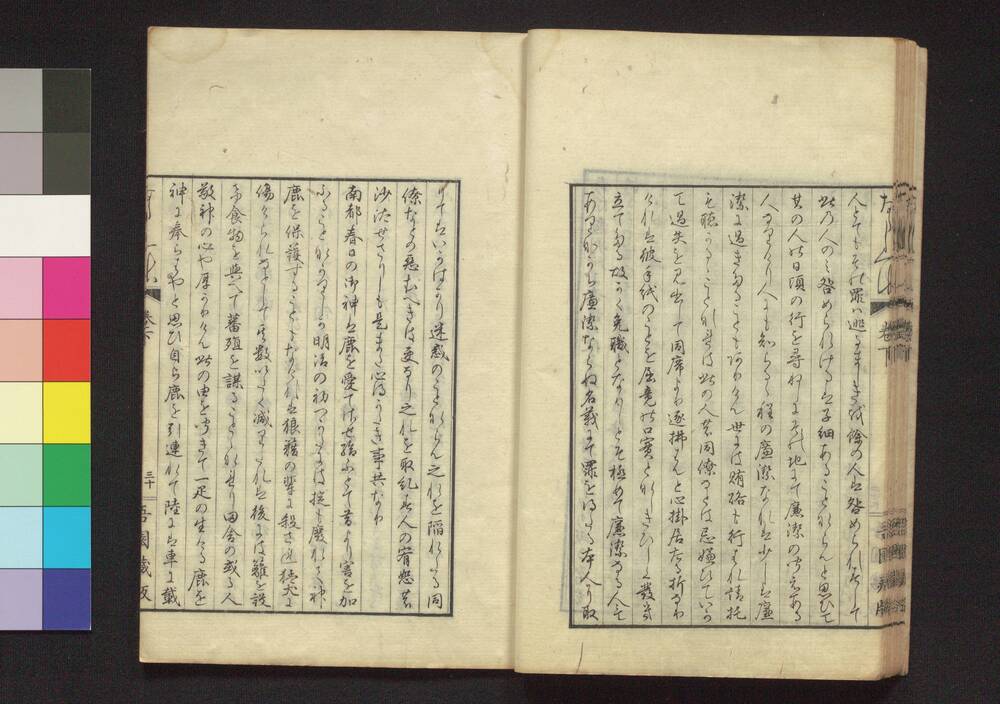 人とてもその罪は逃るまじきを餘の人は咎められずして
此の人のみ咎められけるは子細あることならんと思ひて
其の人の日頃の行を尋ねしにその地にて廉潔の聞えある
人なりけり人にも知らるる程の廉潔なれば少しは廉
潔に過きたることもありけん世には賄賂も行はれ請托
も聴かるることなれば此の人の同僚などは忌嫌ひていか
で過失を見出して同席より逐拂はんと心掛居たる折なり
ければ彼手紙のことを屈竟の口實となしきびしく發き
立てたる故かく免職となりしとぞ極めて廉潔なる人に
ありながら廉潔ならぬ名義にて罪を得たる本人より取
りてはいかばかり迷惑のことならん之れを陥れたる同
僚などの悪むべきは更なり之れを取糺す人の宥恕
沙汰せざりしも是また心得がたき事共なり
南都春日の御神は鹿を愛でさせ給ふとて昔より害を加
ふることなかりしか明治の初つかたには掟も廢れて神
鹿を保護することもなければ狼獲の輩に殺され猛犬に
傷けられなどして其數いたく減りたれば後には籬を設
け食物を與へて蕃殖を謀ることとなれり田舎の或る人
敬神の心や厚かりけん此の由をききて一疋の生たる鹿を
神に奉らばやと思ひ自ら鹿を引連れて陸には車に載
三十
吾園蔵版